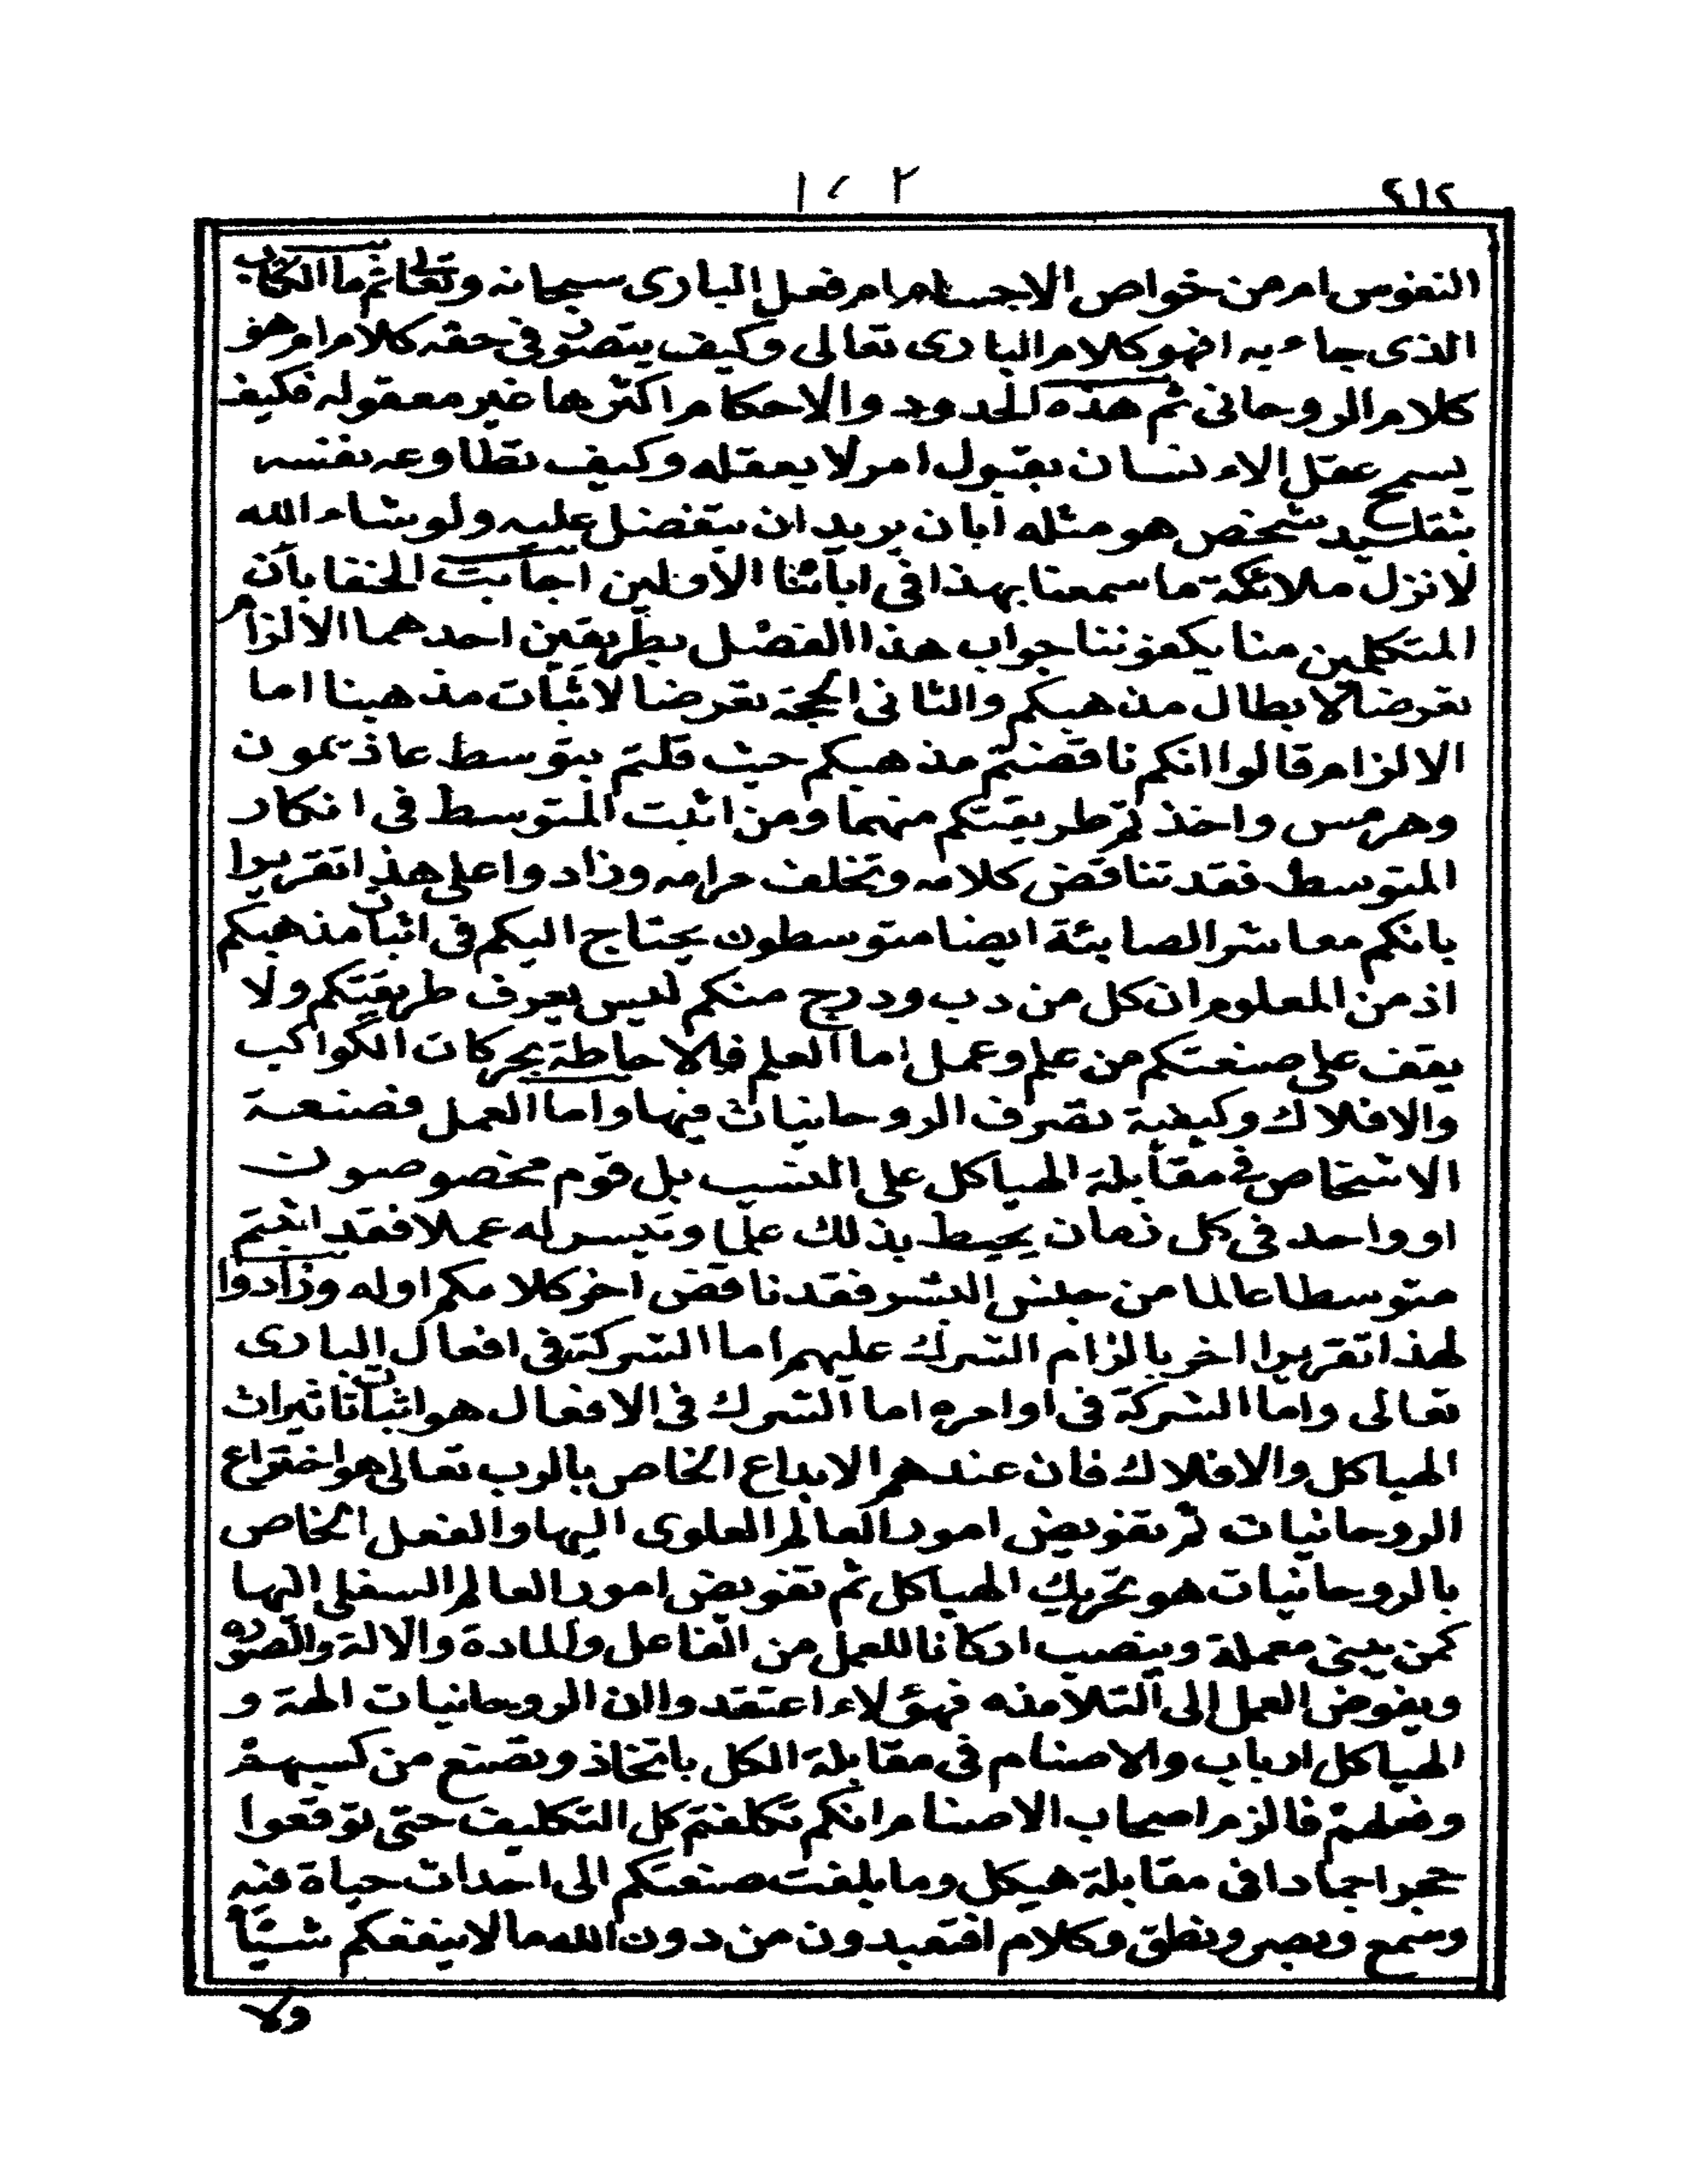 ٢ ٠ ١
٢١٢
النفوس ام من خواص الاجسام ام فعل البارى سبحانه وتعالى ثم ما الكتاب
الذى جاء به افهو كلام البارى تعالى وكيف يتصور فى حقه كلام ام هو
كلام الروحانى ثم هذه الحدود والاحكام اكثرها غير معقوله فكيف
يسمح عقل الانسان بقبول امر لا يعقله وكيف تطاوعه نفسه
بتقليد شخص هو مثله أبان يريد ان يتفضل عليه ولو شاء الله
لانزل ملائكة ما سمعنا بهذا فى ابائنا الأولين اجابت الحنفا بأن
المتكلمين منا يكفوننا جواب هذا الفصل بطريقين احدهما الالزام
تعرضا لابطال مذهبكم والثانى الحجة تعرضا لاثبات مذهبنا اما
الالزام قالوا انكم ناقضتم مذهبكم حيث قلتم بتوسط عاذيمون
وهرمس واخذتم طريقتكم منهما ومن اثبت المتوسط فى انكار
المتوسط فقد تناقض كلامه وتخلف مرامه وزادوا على هذا تقريرا
بانكم معاشر الصابئة ايضا متوسطون يحتاج اليكم فى اثبات مذهبكم
اذ من المعلوم ان كل من دب ودرج منكم ليس يعرف طريقتكم ولا
يقف على صنعتكم من علم وعمل اما العلم فالاحاطة بحركات الكواكب
والافلاك وكيفية تصرف الروحانيات فيها واما العمل فصنعة
الاشخاص فى مقابلة الهياكل على النسب بل قوم مخصوصون
او واحد فى كل زمان يحيط بذلك علما وتيسر له عملا فقد اثبتم
متوسطا عالما من جنس البشر فقد ناقض اخر كلامكم اوله وزادوا
لهذا تقريرا اخر بالزام الشرك عليهم اما الشركة فى افعال البارى
تعالى واما الشركة فى اوامره اما الشرك فى الافعال هو اثبات تاثيرات
الهياكل والافلاك فان عندهم الابداع الخاص بالرب تعالى هو اختراع
الروحانيات ثم تفويض امور العالم العلوى اليها والفعل الخاص
بالروحانيات هو تحريك الهياكل ثم تفويض امور العالم السفلى اليها
كمن يبنى معملة وينصب اركانا للعمل من الفاعل والمادة والالة والصوره
ويفوض العمل الى التلامذه فهؤلاء اعتقدوا ان الروحانيات الهة و
الهياكل ارباب والاصنام فى مقابلة الكل باتخاذ وتصنع من كسبهم
وفعلهم فالزم اصحاب الاصنام انكم تكلفتم كل التكليف حتى توقعوا
حجرا جمادا فى مقابلة هيكل وما بلغت صنعتكم الى احداث حياة فيه
وسمع وبصر ونطق وكلام افتعبدون من دون الله ما لا ينفعكم شيئا
ولا